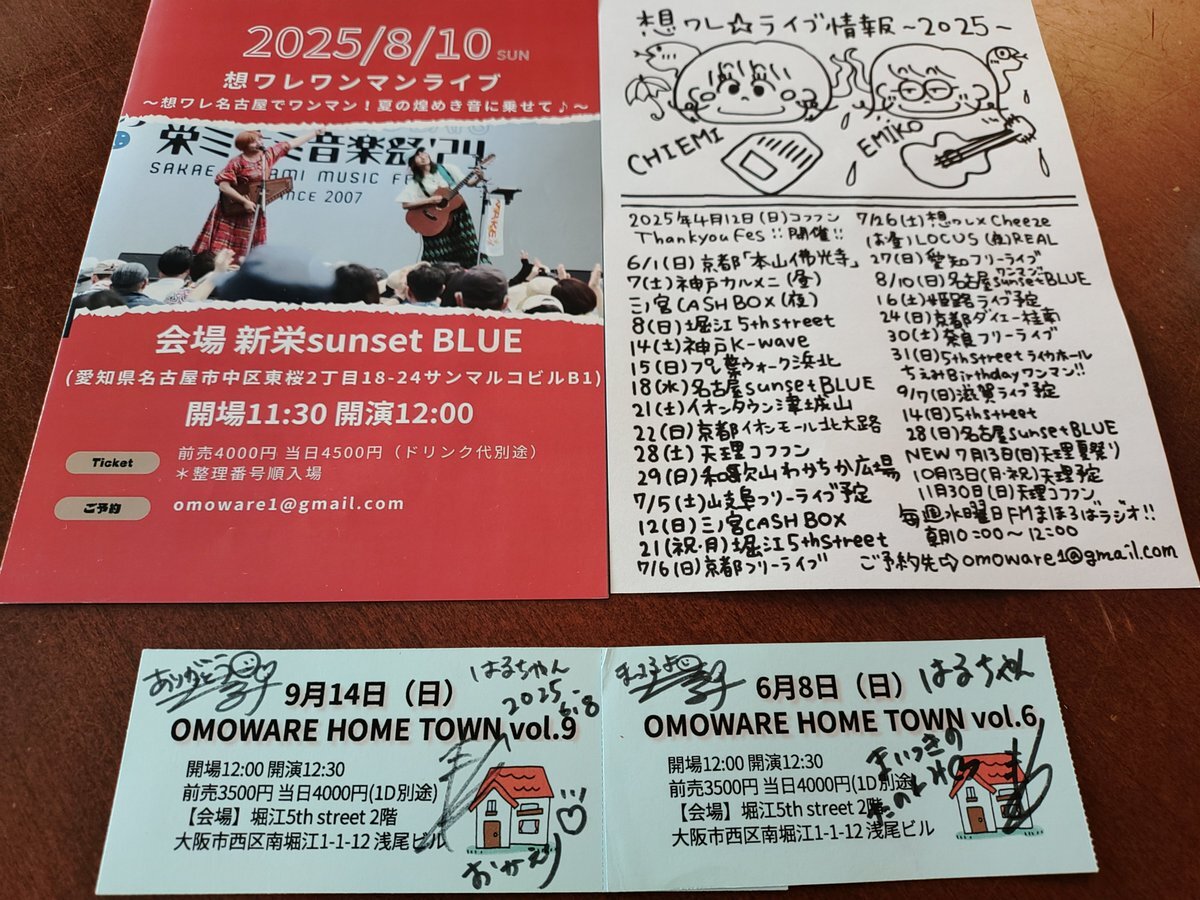 2025/8/10 SUN
想ワレワンマンライブ
～想ワレ名古屋でワンマン！夏の煌めき音に乗せて♪～
栄ミナミ音楽祭'24
SAKAE MINAMI MUSIC F
SINCE 2007
会場 新栄sunset BLUE
(愛知県名古屋市中区東桜2丁目18-24サンマルコビルB1)
開場11:30 開演12:00
Ticket
前売4000円 当日4500円（ドリンク代別途）
＊整理番号順入場
ご予約
omoware1@gmail.com
想ワレ☆ライブ情報～2025～
CHIEMI
EMIKO
2025年4月12日(日)コフフン
Thankyou Fes!!開催!!
6/1(日)京都「本山佛光寺」
7(土)神戸カルメニ(昼)
三ノ宮CASH BOX(夜)
8(日)堀江5th street
14(土)神戸K-wave
15(日)プレ葉ウォーク浜北
18(水)名古屋sunset BLUE
21(土)イオンタウン津城山
22(日)京都イオンモール北大路
28(土)天理コフフン
29(日)和歌山わかちか広場
7/5(土)岐阜フリーライブ予定
12(日)三ノ宮CASH BOX
21(祝・月)堀江5th Street
7/6(日)京都フリーライブ
7/26(土)想ワレ×Cheeze
(お昼)LOCUS(夜)REAL
27(日)愛知フリーライブ
8/10(日)名古屋ワンマンsunset BLUE
16(土)姫路ライブ予定
24(日)京都ダイエー桂南
30(土)奈良フリーライブ
31(日)5th Streetライカホール
ちえみBirthdayワンマン!!
9/7(日)滋賀ライブ予定
14(日)5th street
28(日)名古屋sunset BLUE
NEW 7月13日(日)天理夏祭り
10月13日(月・祝)天理予定
11月30日(日)天理コフフン
毎週水曜日FMまほろばラジオ!!
朝10:00～12:00
ご予約先⇨omoware1@gmail.com
ありがとう
はるちゃん
2025.6.8
9月14日（日）
OMOWARE HOME TOWN vol.9
開場12:00 開演12:30
前売3500円 当日4000円(1D別途)
【会場】堀江5th street 2階
大阪市西区南堀江1-1-12 浅尾ビル
おかえり
はるちゃん
6月8日（日）
OMOWARE HOME TOWN vol.6
まいつきの
開場12:00 開演12:30
前売3500円 当日4000円(1D別途)
【会場】堀江5th street 2階
大阪市西区南堀江1-1-12 浅尾ビル